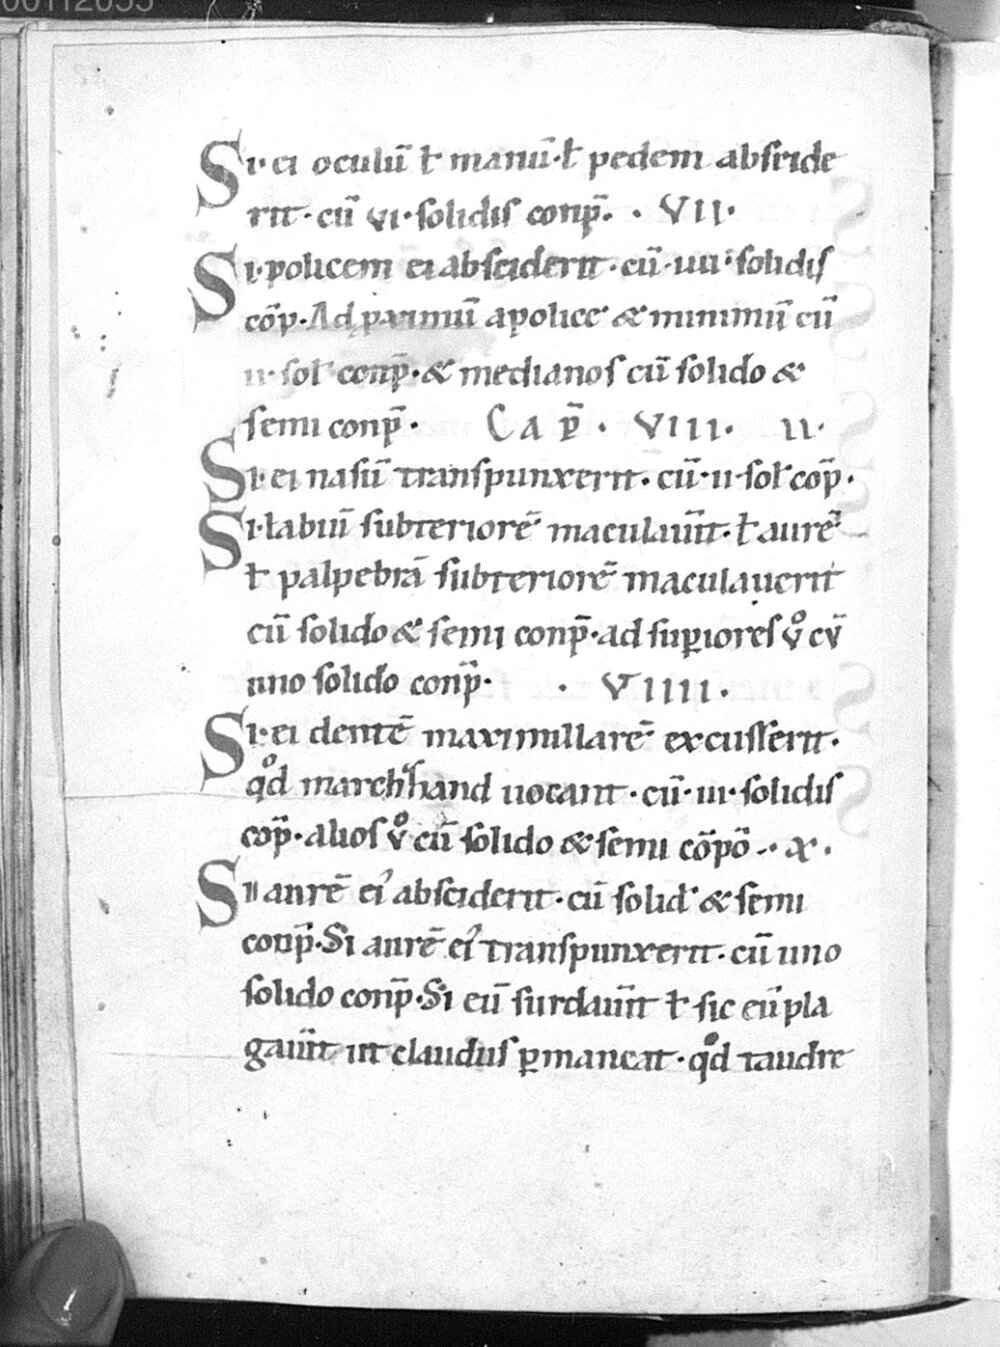 00112055
Si ei oculū ł manū · ł pedem abscide
rit · cū vi · solidis conp̄ · · VII ·
Si policem ei absciderit · cū · iiii · solidis
cōp · Ad p̄ximū a police & minimū cū
ii · sol conp̄ · & medianos cū solido &
semi conp̄ · Cap̄ · VIII · II ·
Si ei nasū transpunxerit · cū · ii · sol cōp̄ ·
Si labiū subteriorē maculaūit · ł aurē
ł palpebrā subteriorē maculauerit
cū solido & semi conp̄ · ad suꝑiores v̊ cū
uno solido conp̄ · · VIIII ·
Si ei dentē maximillarē excusserit ·
qd̊ marchzand uocant · cū · iii · solidis
cōp̄ · alios v̊ cū solido & semi cōpō · · X ·
Si aurē ei absciderit · cū solid & semi
conp̄ · Si aurē ei transpunxerit · cū uno
solido conp̄ · Si eū surdaūit ł sic eū pla
gaūit ut claudus ꝑmaneat · qd̊ taudre